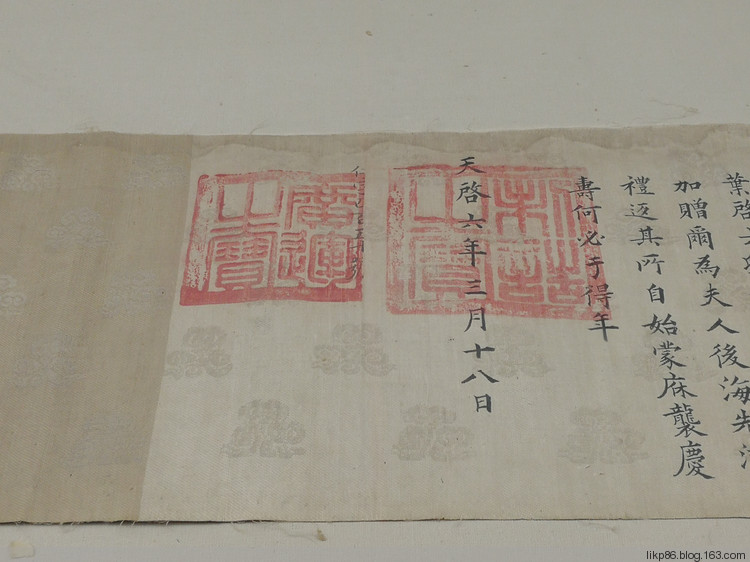 葉啓
加贈爾為夫人後海先
禮返其所自始蒙庥襲慶
壽何必于得年
制誥之寶
天啓六年三月十八日
廣運之寶
likp86.blog.163.com